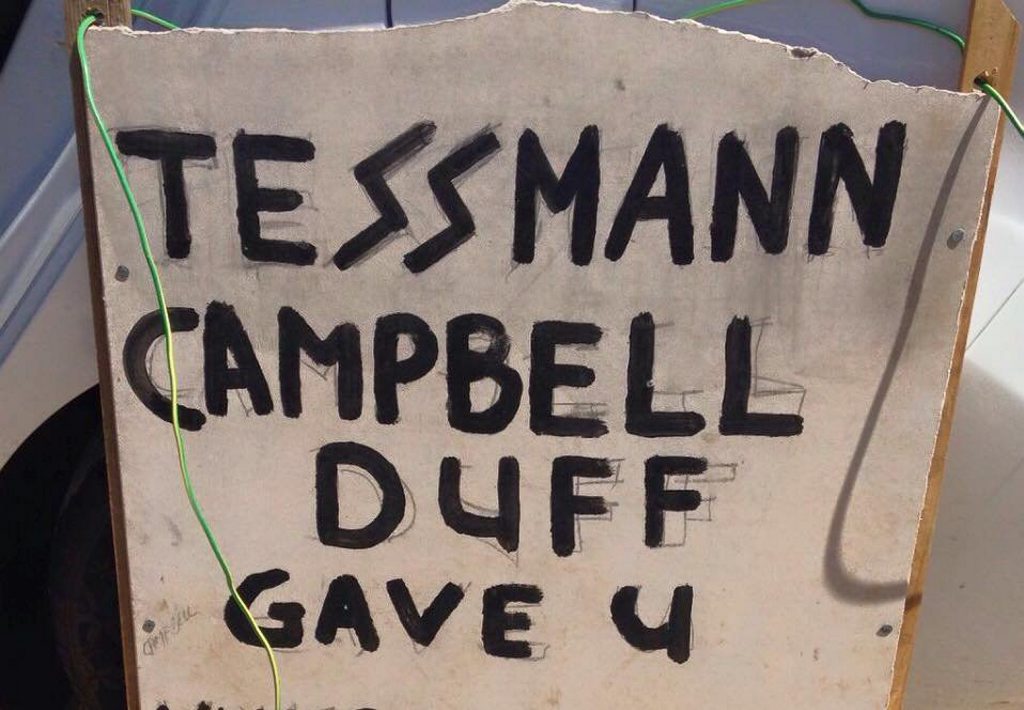 TESSMANN
CAMPBELL
DUFF
GAVE U